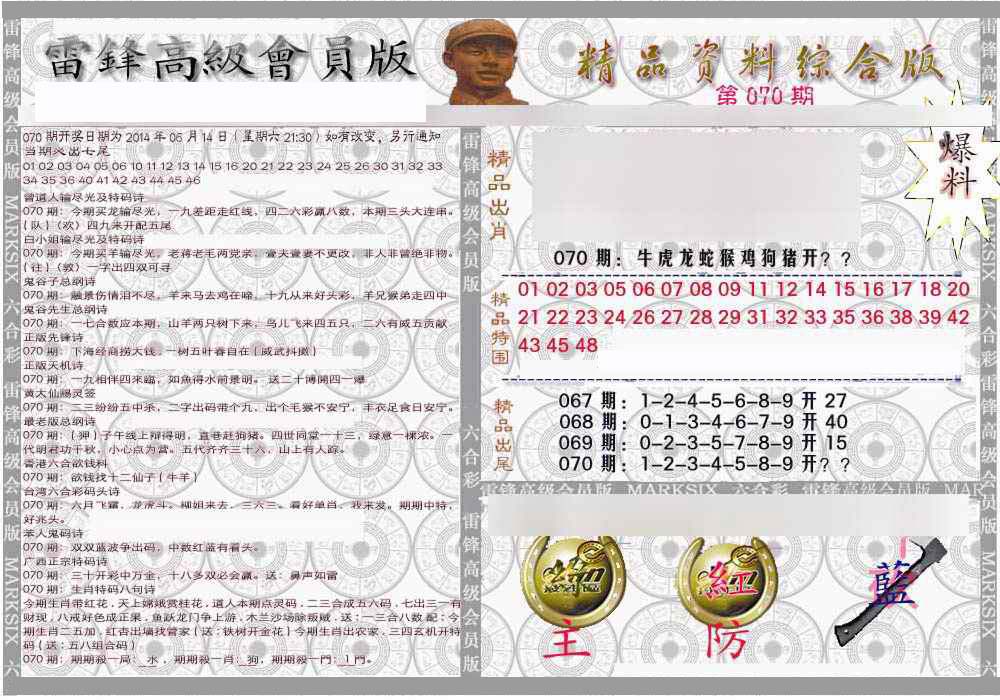 雷鋒高級會員版
精品资料综合版
第070期
070 期开奖日期为 2014 年 06 月 14 日（星期六 21:30）如有改变，另行通知
01 02 03 04 05 06 10 11 12 13 14 15 16 20 21 22 23 24 25 26 30 31 32 33
34 35 36 40 41 42 43 44 45 46
曾道人输尽光及特码诗
070 期：今期买龙输尽光，一九差距走红线，四二六彩赢八数，本期三头大连串。
{队}〈欢〉四九来开配五尾
白小姐输尽光及特码诗
070 期：今期买羊输尽光，老蒋老毛两党亲，妻夫妻妻不更改，非人非曾绝非物。
{往}〈敦〉一字出四双可寻
鬼谷子总纲诗
070 期：融景伤情泪不尽，羊来马去鸡在啼，十九从来好头彩，羊兄猴弟走四中
鬼谷先生总纲诗
070 期：一七合数应本期，山羊两只树下来，鸟儿飞来四五只，二六有威五贡献
正版先锋诗
070 期：下海经商捞大钱，一树五叶春自在{威武抖擞}
正版天机诗
070 期：一九相伴四來臨，如魚得水前景明。送二十博開四一爆
黄大仙赐灵签
070 期：二三纷纷五中杀，二字出码带个九，出个毛猴不安宁，丰衣足食日安宁。
最老版总纲诗
070 期：{狎}子午线上辩得明，直巷赶狗猪。四世同堂一十三，绿意一棵浓。一
代明君功千秋，小心点为营。五代齐齐三十六，山上有人踪。
香港六合欲钱料
070 期：欲钱找十二仙子{牛羊}
台湾六合彩码头诗
070 期：六月飞霜，龙虎斗。柳姐来去，三六三。看好单肖，我来发。期期中特，
好兆头。
苯人鬼码诗
070 期：双双蓝波争出码，中数红蓝有看头。
广西正宗特码诗
070 期：三十开彩中万金，十八多双必会赢。送：鼻声如雷
070 期：生肖特码八句诗
今期生肖带红花，天上嫦娥赏桂花，道人本期点灵码，二三合成五六码，七出三一有
财现，八戒好色成正果，鱼跃龙门争上游，木兰沙场除叛贼，送：一三合八数 配：今
期生肖二五加，红杏出墙找管家{送：铁树开金花}今期生肖出农家，三四玄机开特
码{送：五八组合码}
070 期：期期殺一局：水，期期殺一肖：狗，期期殺一門：1 門。
爆料
精品出肖
070 期：牛虎龙蛇猴鸡狗猪开？？
精品特围
01 02 03 05 06 07 08 09 11 12 14 15 16 17 18 20
21 22 23 24 26 27 28 29 31 32 33 35 36 38 39 42
43 45 48
精品出尾
067 期：1-2-4-5-6-8-9 开 27
068 期：0-1-3-4-6-7-9 开 40
069 期：0-2-3-5-7-8-9 开 15
070 期：1-2-3-4-5-8-9 开？？
雷锋高级会员版 MARKSIX 六合彩 雷锋高级会员版
紅
藍
主
防